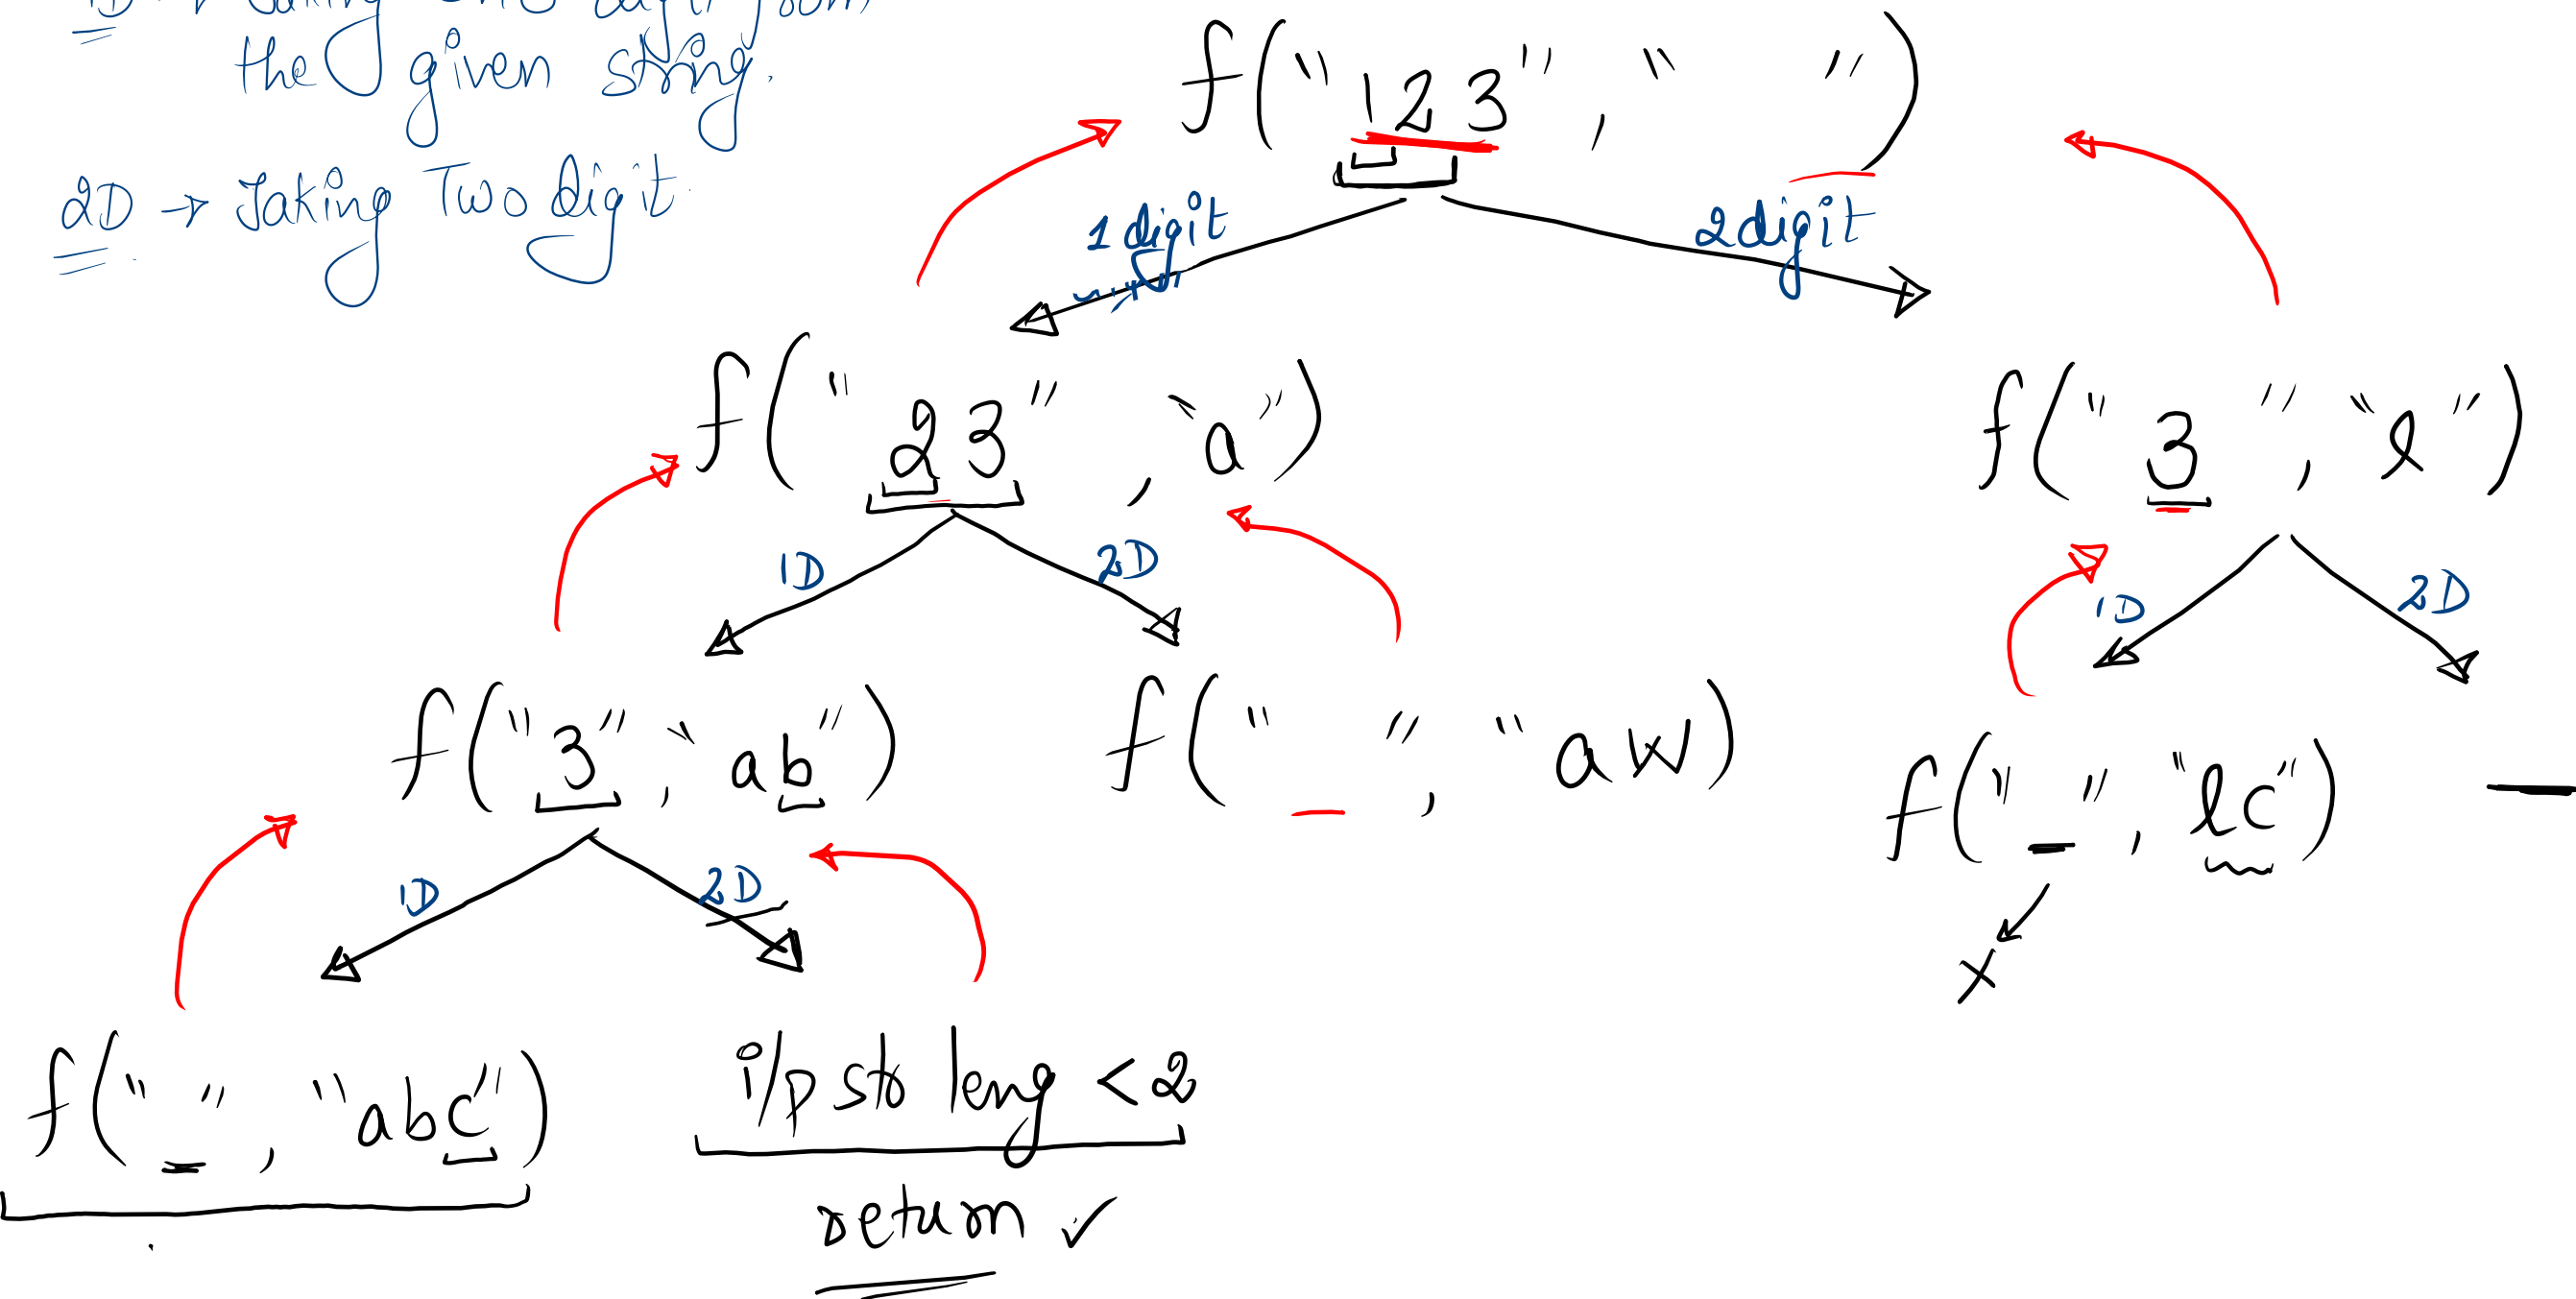 1D → Taking one digit from
the given string.
2D → Taking Two digit
f("123", " ")
1 digit
2 digit
f("23", "a")
f("3", "l")
1D
2D
1D
2D
f("3", "ab")
f(" _ ", "aw)
f("_", "lc")
1D
2D
x
f("_", "abc")
i/p str leng < 2
return ✓